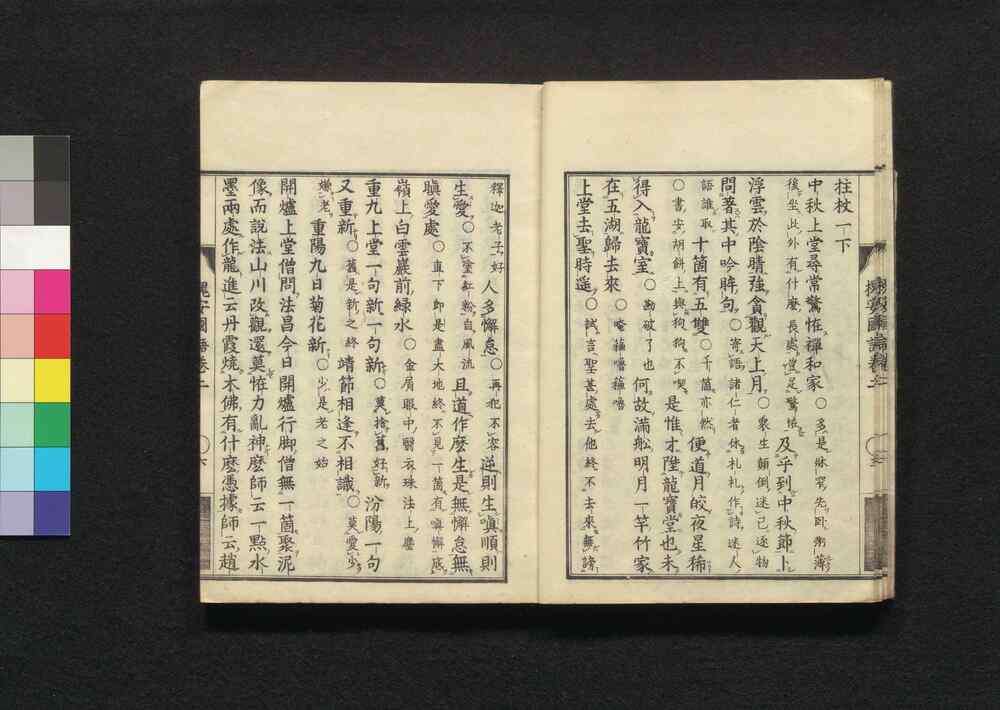 拄杖一下
中秋上堂尋常驚恠禪和家○多是休穿先因粥薄
後坐此外有什麼長處豈足驚恠及乎到中秋節上
浮雲於陰晴強貪觀天上月○衆生顛倒迷己逐物
問著其中吟眸句○寄語諸仁者休札札作詩迷人
語誰取十箇有五雙○千箇亦然便道月皎夜星稀
○書安胡餅上與狗狗不喫是惟才陞龍寶堂也未
得入龍寶室○勘破了也何故滿舩明月一竿竹家
在五湖歸去來○唵蘓嚕蘓嚕
上堂去聖時遥○試言聖甚處去他終不去來無謗
槐安國語卷二
釋迦老子好人多懈怠○再犯不容逆則生嗔順則
生愛○不塗紅粉自風流且道作麼生是無懈怠無
瞋愛處○直下即是盡大地終不見一箇有嗔懈底
嶺上白雲巖前緑水○金屑眼中翳衣珠法上塵
重九上堂一句新一句新○莫捨舊好新汾陽一句
又重新○舊是新之終靖節相逢不相識○莫愛少
嫌老重陽九日菊花新○少是老之始
開爐上堂僧問法昌今日開爐行脚僧無一箇聚泥
像而說法山川改觀還莫恠力亂神麼師云一點水
墨兩處作龍進云丹霞燒木佛有什麼憑據師云趙
槐安國語卷二